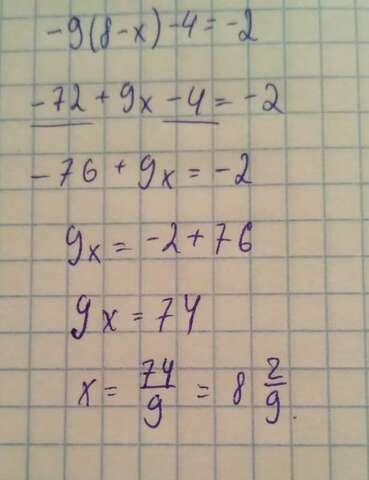 -9(8-x)-4=-2
-72+9x-4=-2
-76+9x=-2
9x=-2+76
9x=74
x=74/9=8 2/9.